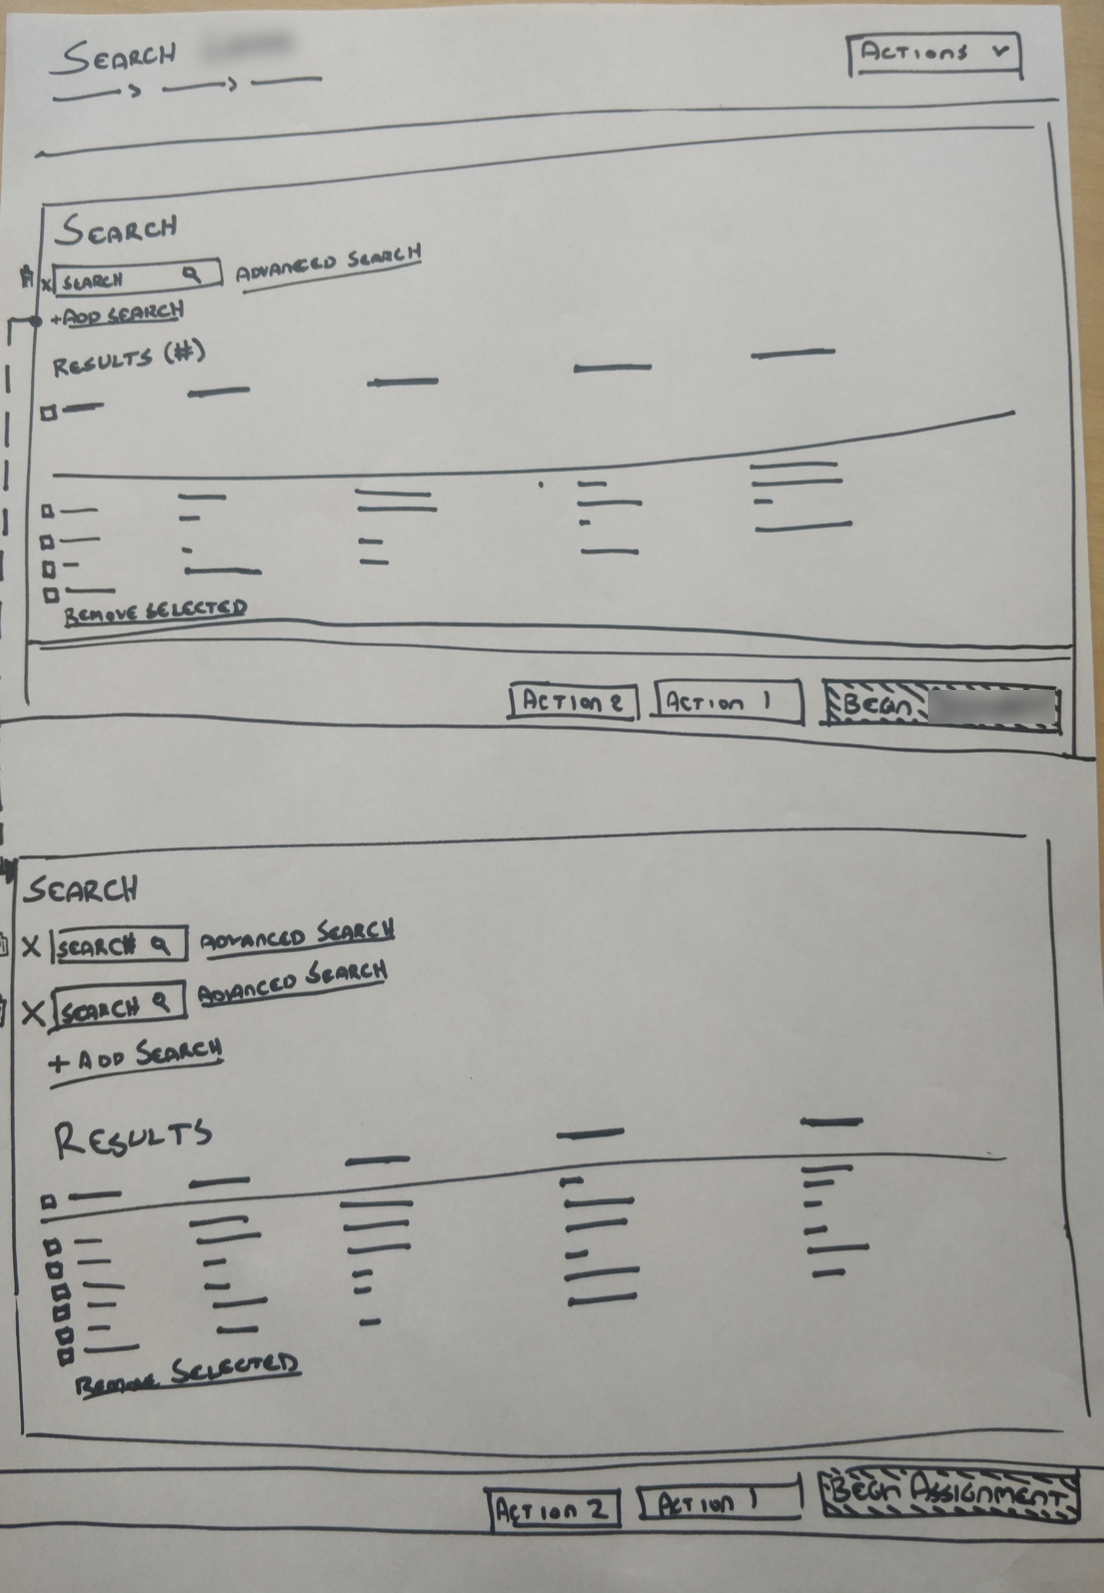 SEARCH
ACTIONS
SEARCH
SEARCH ADVANCED SEARCH
+ADD SEARCH
RESULTS (#)
REMOVE SELECTED
ACTION 2 ACTION 1 BEGIN
SEARCH
X SEARCH ADVANCED SEARCH
X SEARCH ADVANCED SEARCH
+ ADD SEARCH
RESULTS
REMOVE SELECTED
ACTION 2 ACTION 1 BEGIN ASSIGNMENT